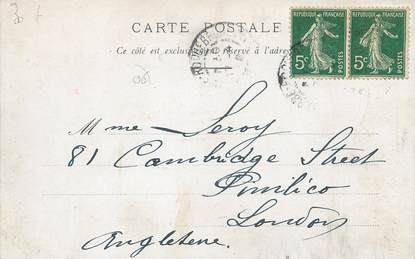 CARTE POSTALE
Ce côté est exclusivement réservé à l'adresse
RÉPUBLIQUE FRANÇAISE
5c POSTES
RÉPUBLIQUE FRANÇAISE
5c POSTES
Mme Leroy
81 Cambridge Street
Pimlico
London
Angleterre.